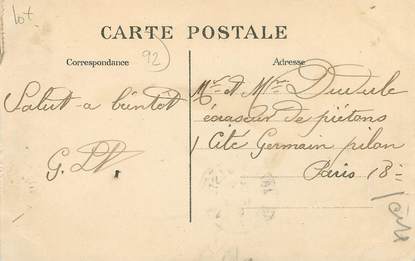 lot
CARTE POSTALE
Correspondance
92
Adresse
Salut - a bientôt
G.
Mr et Mme Duvule
écraseur de piétons
1 Cité Germain pilon
Paris 18